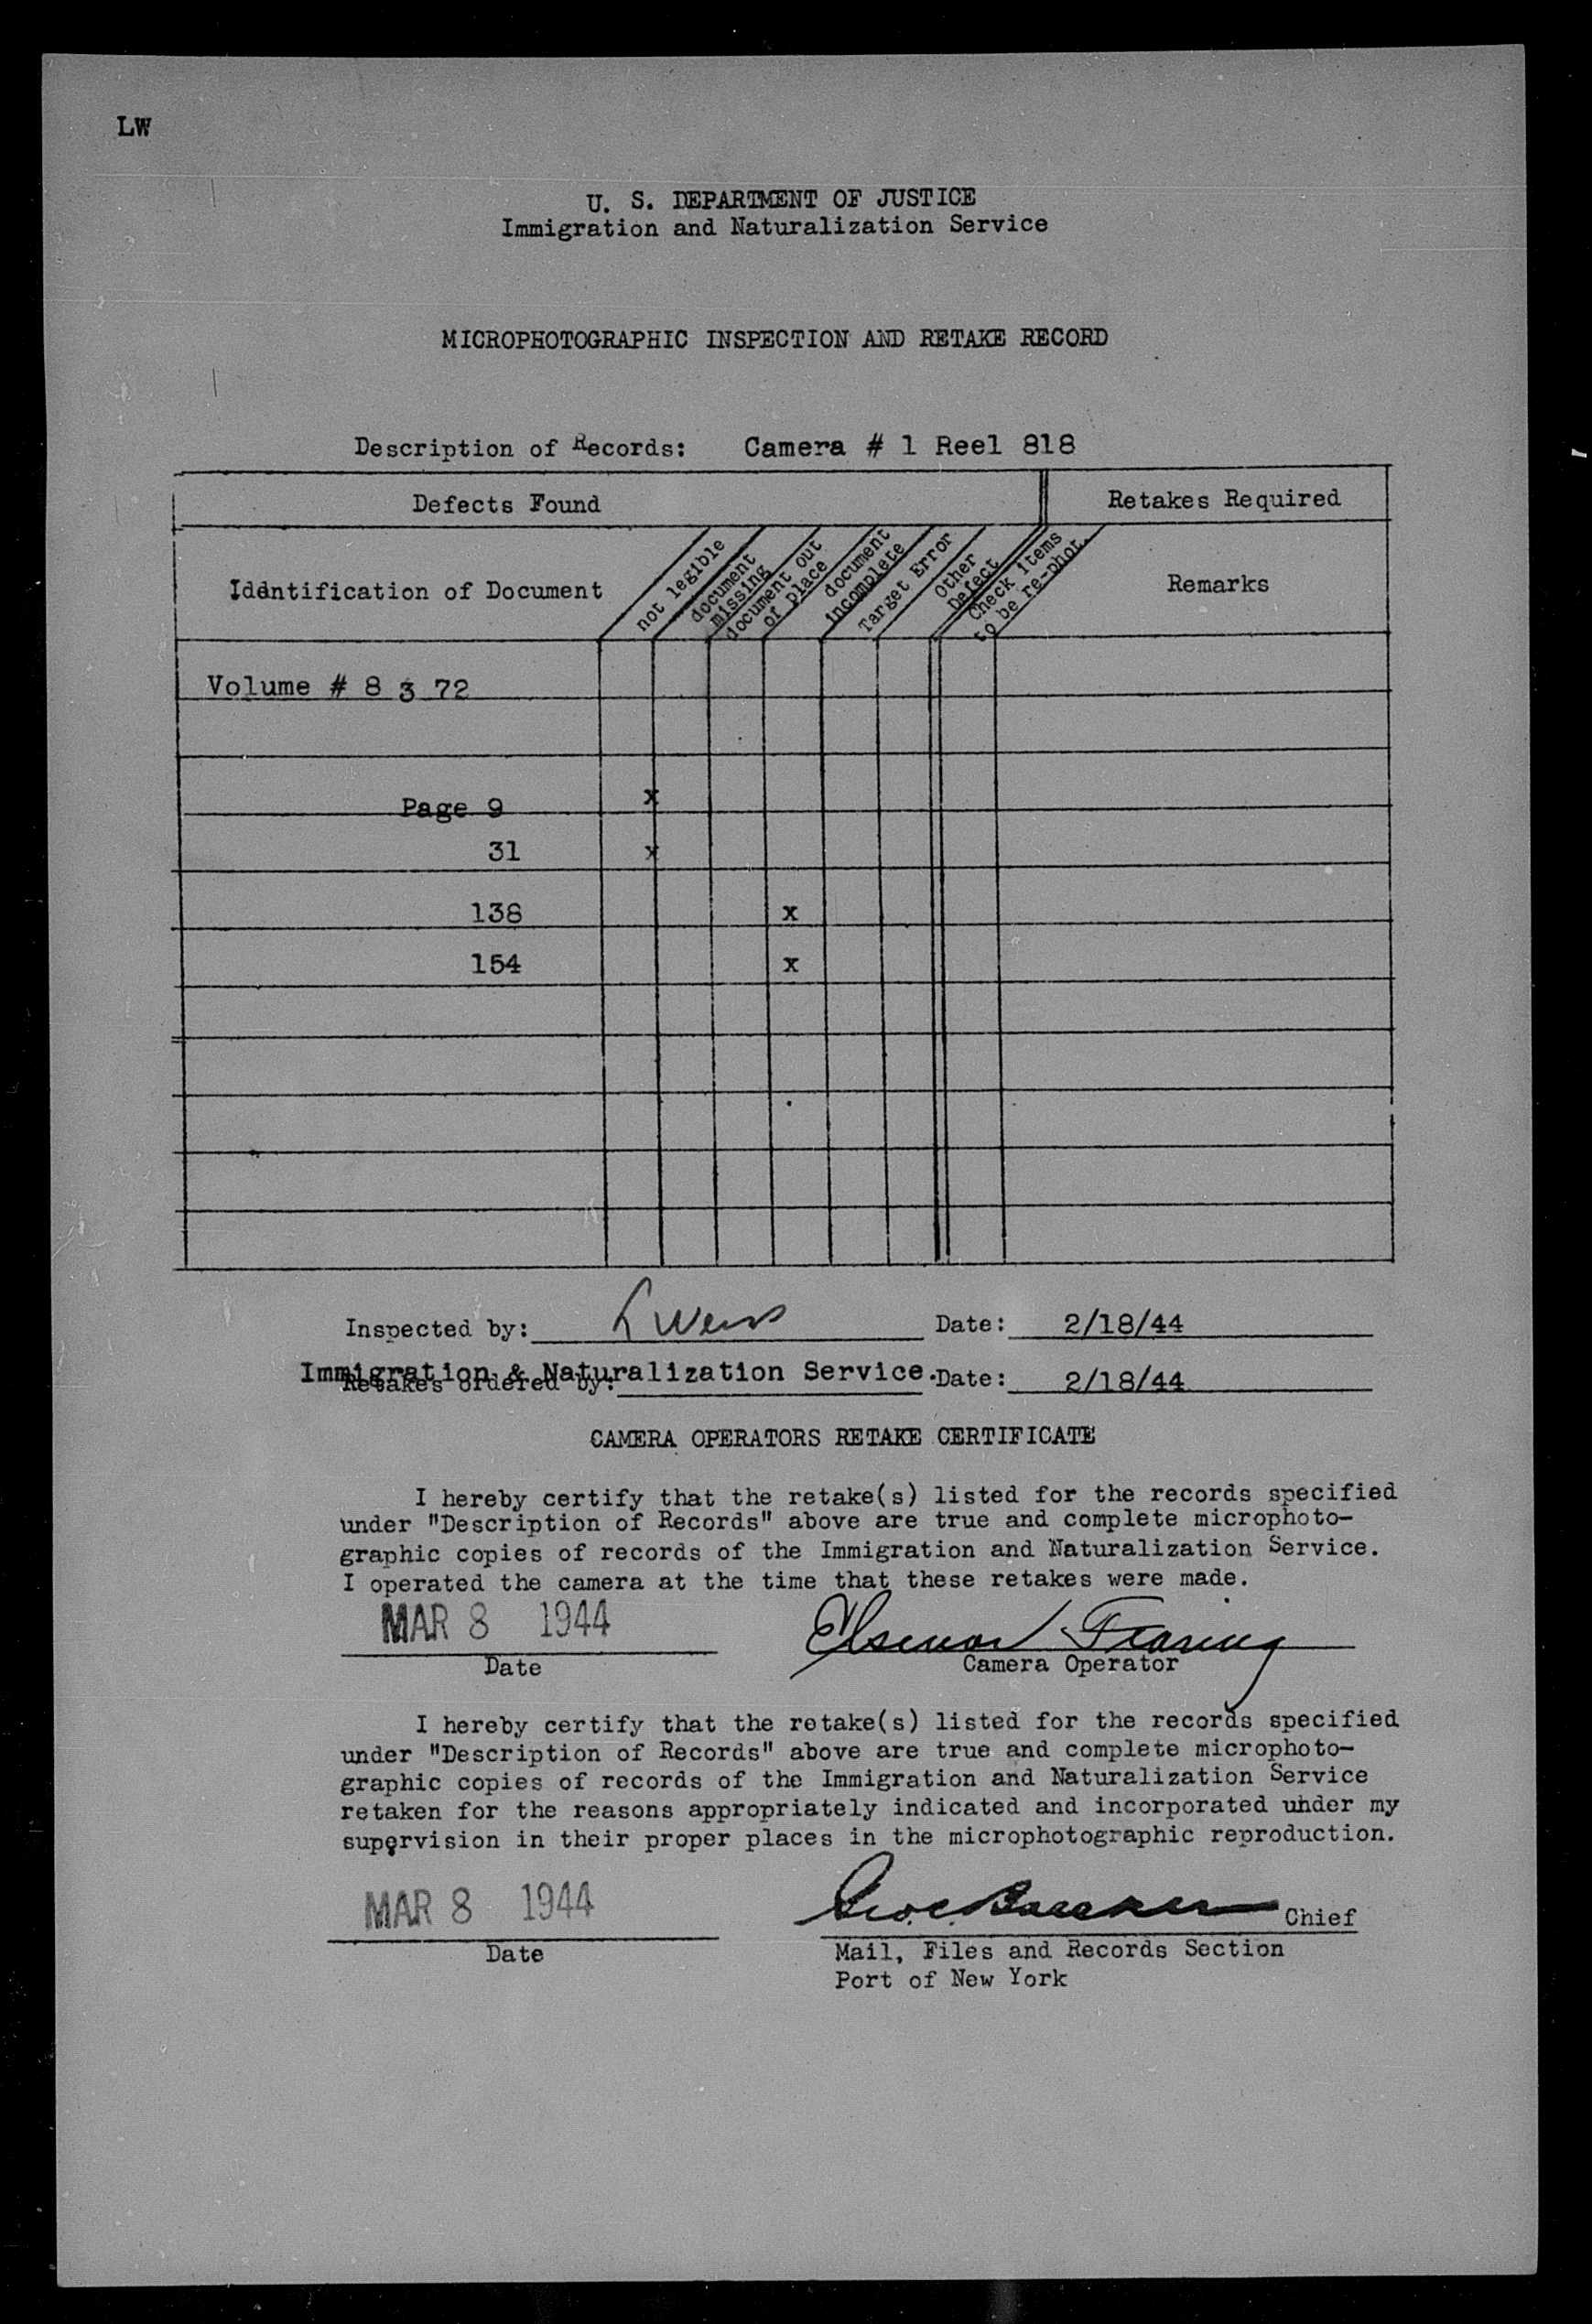 LW
U. S. DEPARTMENT OF JUSTICE
Immigration and Naturalization Service
MICROPHOTOGRAPHIC INSPECTION AND RETAKE RECORD
Description of Records: Camera # 1 Reel 818
Defects Found Retakes Required
Identification of Document not legible document missing document out of place document incomplete Target Error Other Defect Check items to be re-phot. Remarks
Volume # 8 3 72
Page 9 x
31 x
138 x
154 x
Inspected by: L Weiss Date: 2/18/44
Immigration & Naturalization Service.
Retakes ordered by: Date: 2/18/44
CAMERA OPERATORS RETAKE CERTIFICATE
I hereby certify that the retake(s) listed for the records specified
under "Description of Records" above are true and complete microphoto-
graphic copies of records of the Immigration and Naturalization Service.
I operated the camera at the time that these retakes were made.
MAR 8 1944
Date Camera Operator
I hereby certify that the retake(s) listed for the records specified
under "Description of Records" above are true and complete microphoto-
graphic copies of records of the Immigration and Naturalization Service
retaken for the reasons appropriately indicated and incorporated under my
supervision in their proper places in the microphotographic reproduction.
MAR 8 1944 Chief
Date Mail, Files and Records Section
Port of New York